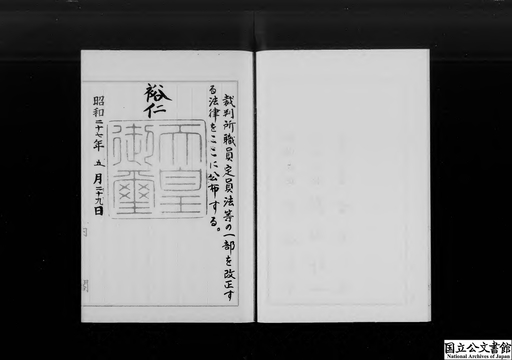 裁判所職員定員法等の一部を改正す
る法律をここに公布する。
裕仁
天皇
御璽
昭和二十七年五月二十九日
国立公文書館
National Archives of Japan